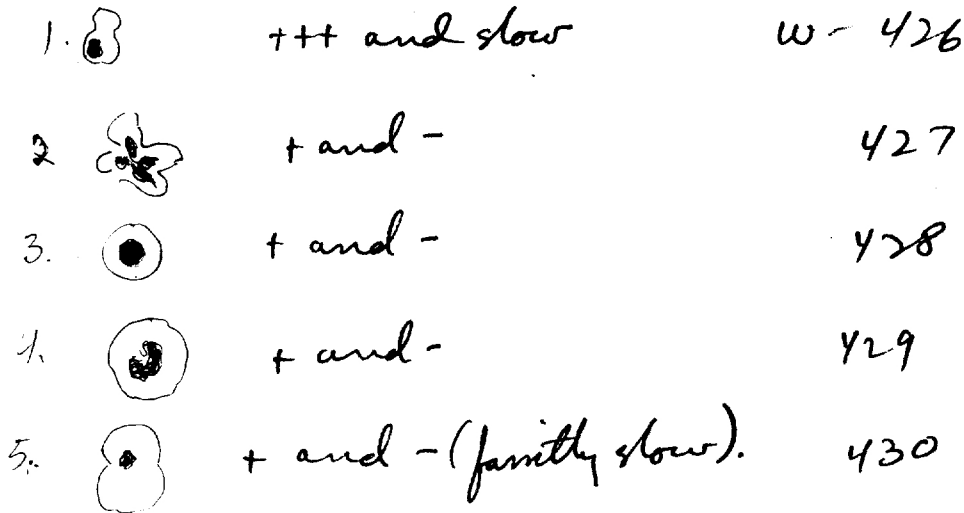 1. +++ and slow w- 426
2 + and - 427
3. + and - 428
4. + and - 429
5. + and - (faintly slow). 430